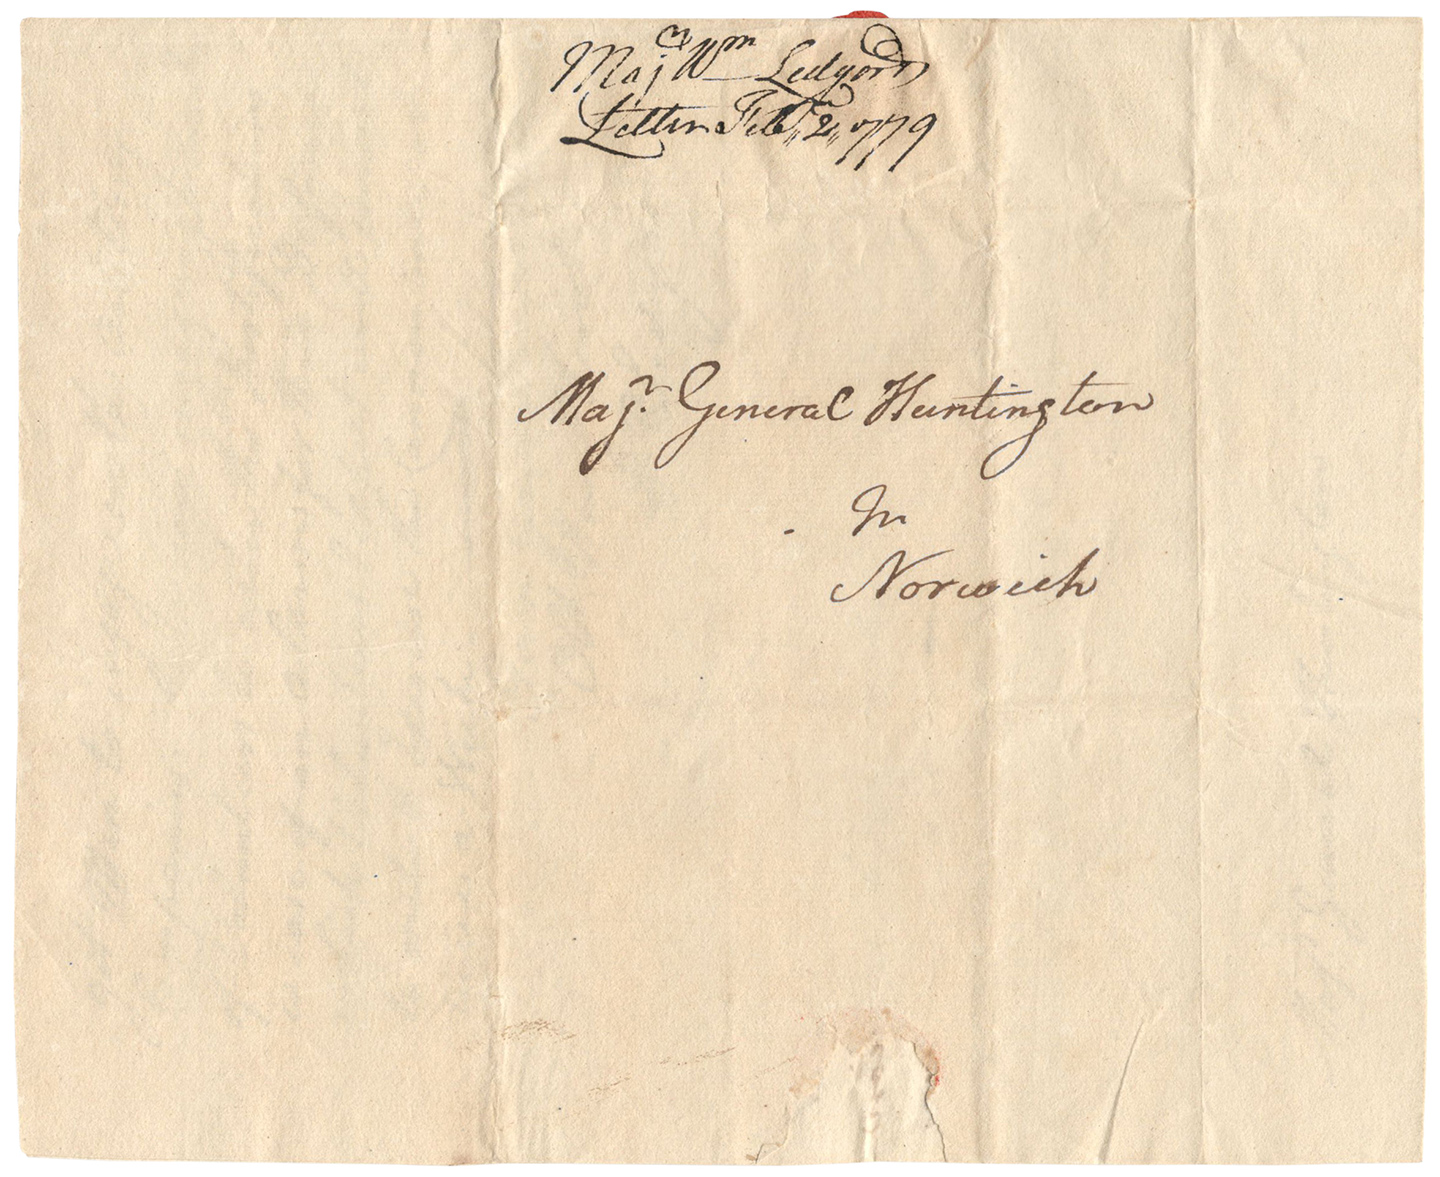 Majr Wm Ledyard
Letter Feb. 2, 1779
Majr. General Huntington
In
Norwich